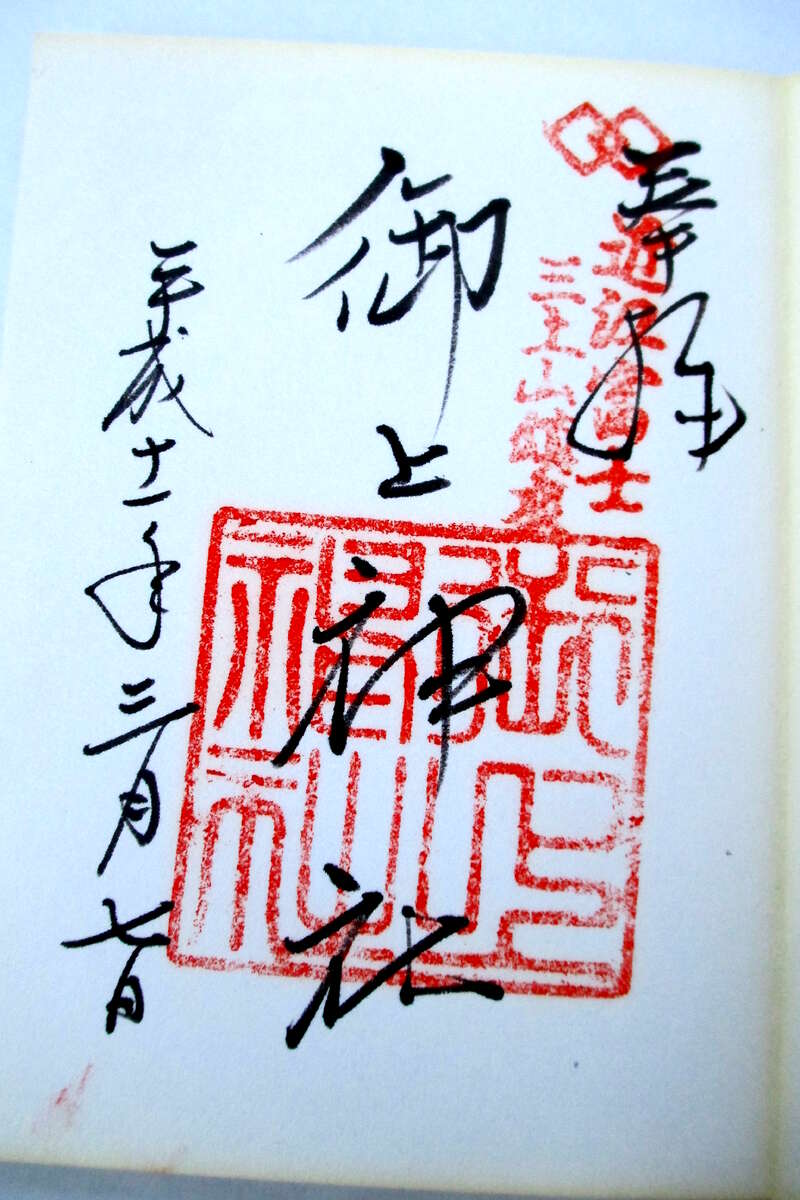 奉拝
近江富士
三上山鎮座
御上神社
御上神社
平成十一年三月七日